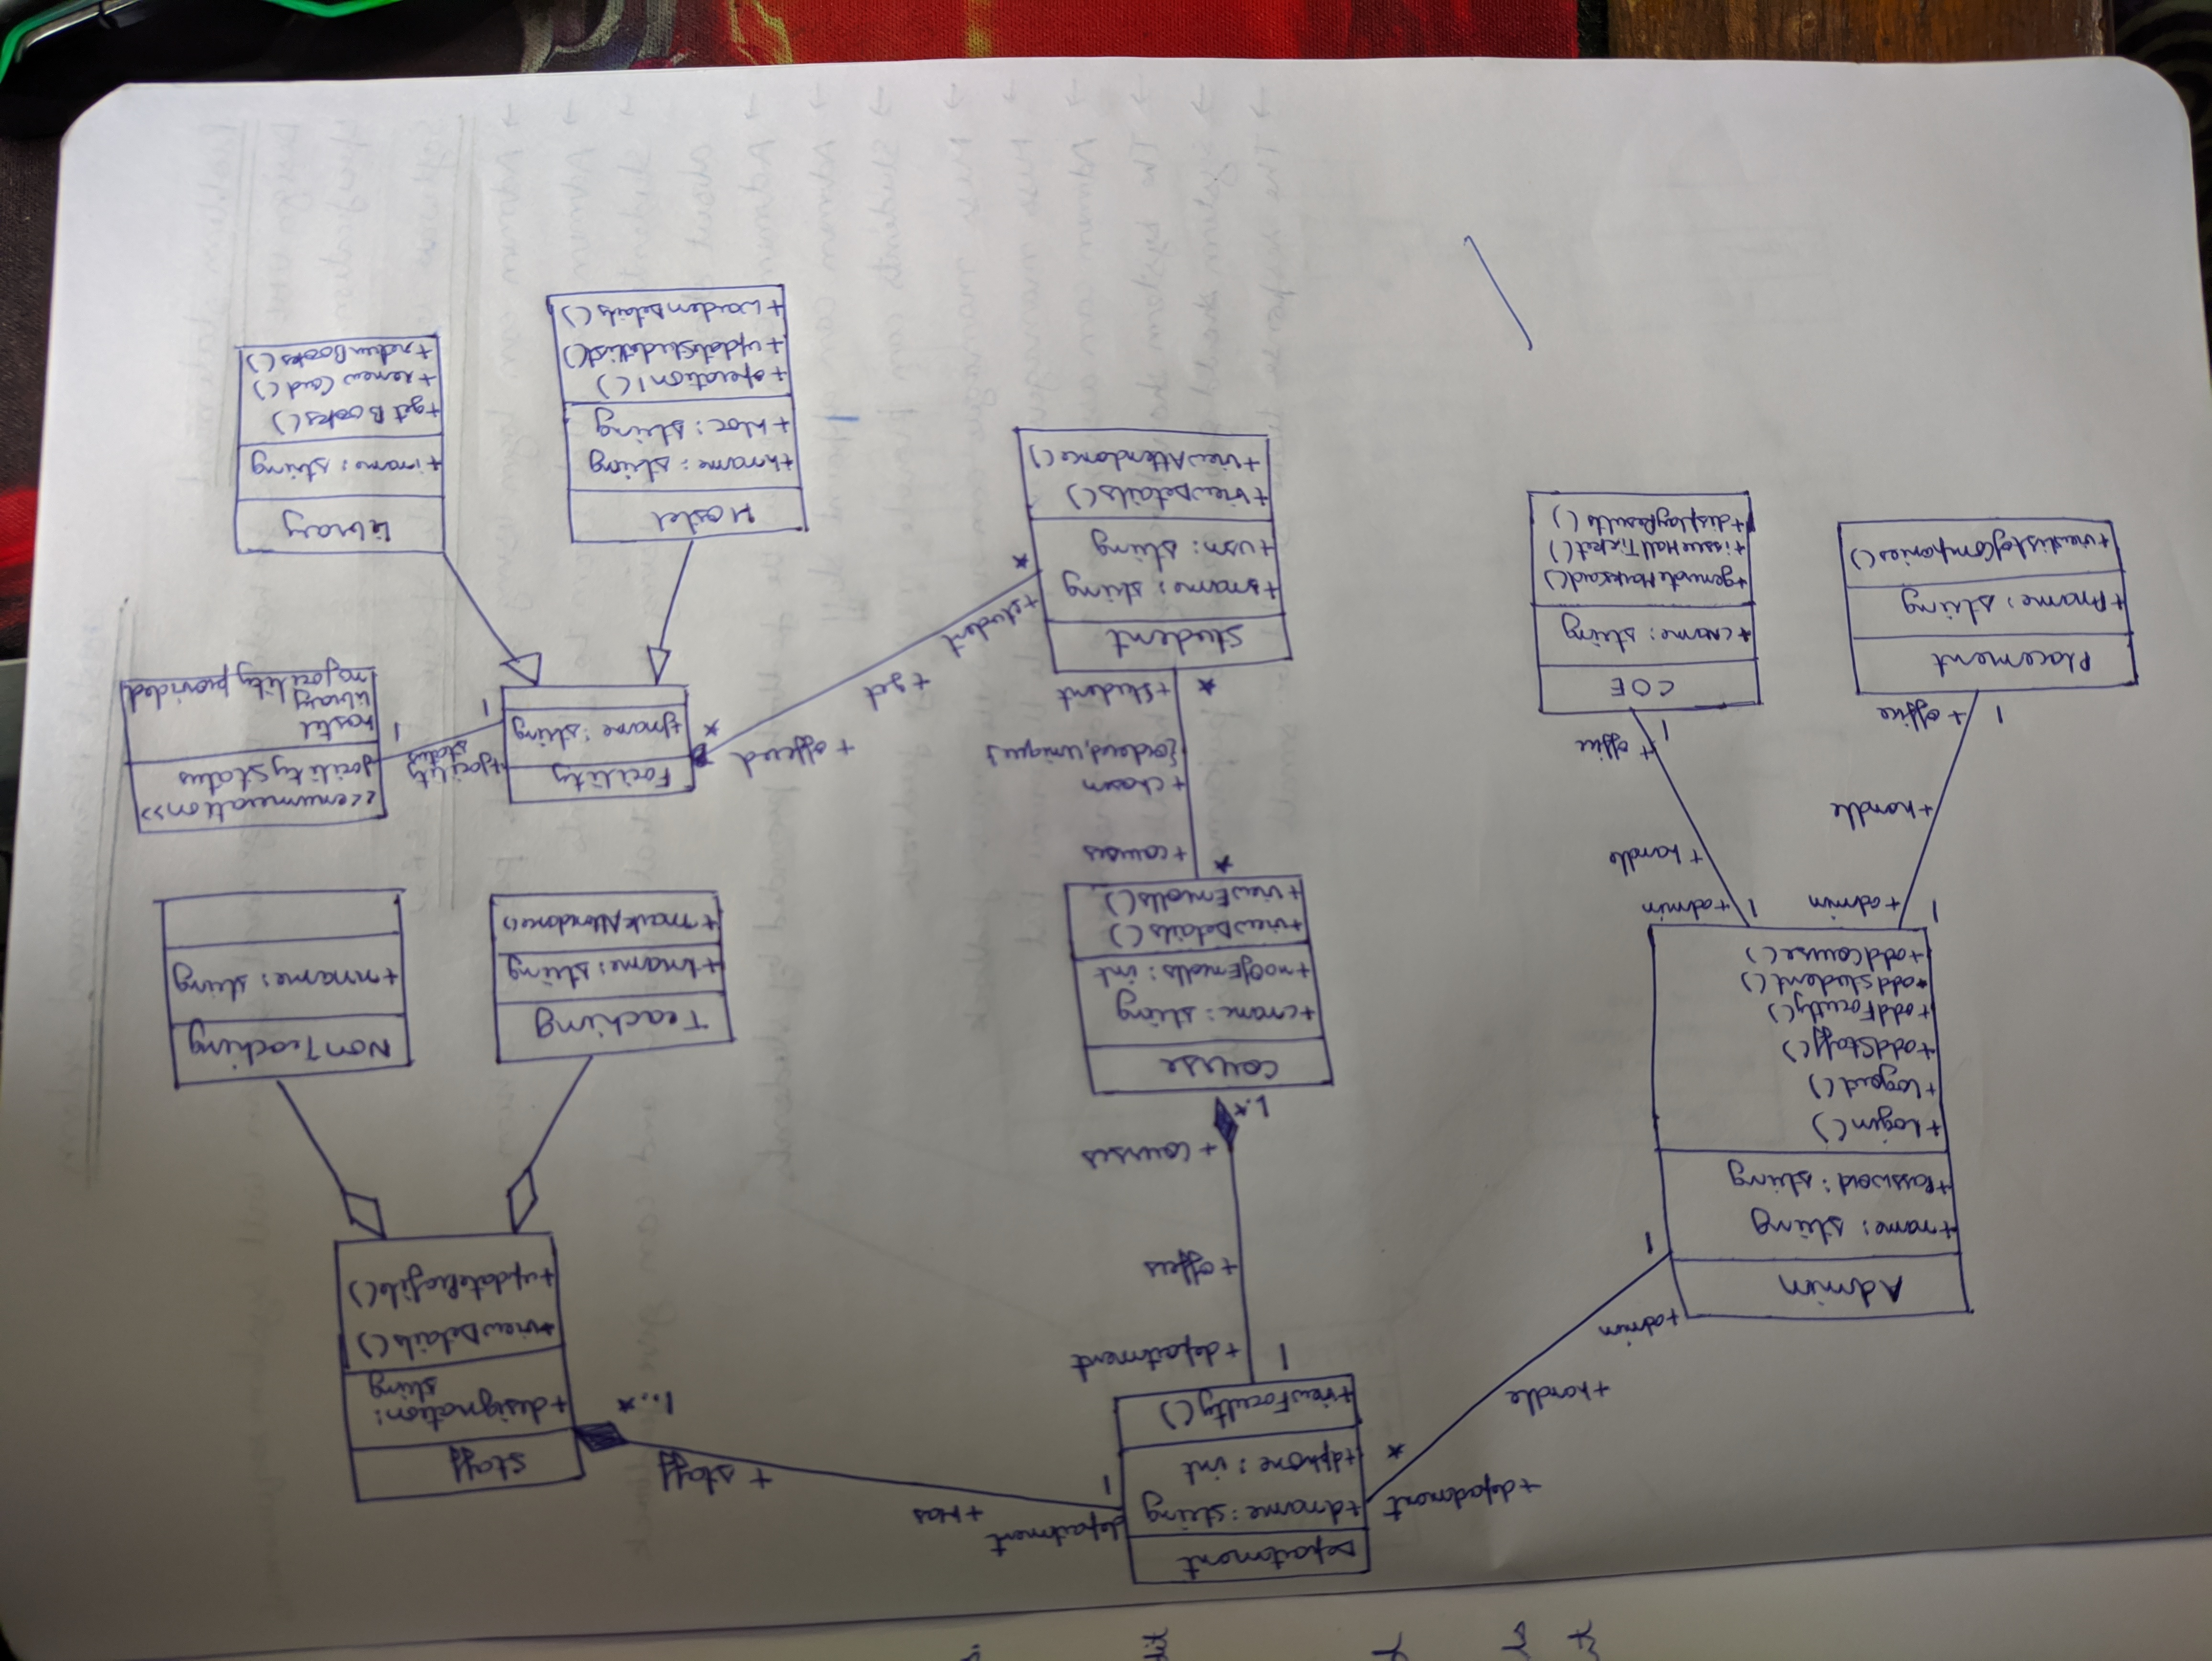 Department
+dname : string
+dphone : int
+viewFaculty()
+department
*
+handle
+admin
1
department
1
+Has
+ staff
1..*
Staff
+designation:
string
+viewDetails()
+updateProfile()
Admin
+name: string
+Password: string
+login()
+logout()
+addStaff()
+addFacutly()
+addstudent()
+addCourse()
1
+department
+ offers
+ courses
1..*
Course
+cname: string
+noOfEnrolls: int
+viewDetails()
+viewEnrolls()
Teaching
+tname: string
+markAttendance()
NonTeaching
+nname: string
1
+admin
+handle
1
+ office
1
+admin
+ handle
+ office
1
Placement
+Pname: string
+viewlistofCompanies()
COE
+cname: string
+generateMarkscard()
+issueHallTicket()
+displayResults()
*
+courses
+ chosen
{ordered,unique}
*
+Student
Student
+sname: string
+usn: string
+viewDetails()
+viewAttendance()
+student
*
+get
+ offered
*
Facility
+fname : string
+facility
status
1
1
<<enumeration>>
facilityStatus
hostel
library
nofacility provided
Hostel
+hname: string
+ hloc: string
+ operation1()
+ updateStudetlist()
+ wardenDetails()
Library
+iname: string
+getBooks()
+renewCard()
+returBooks()